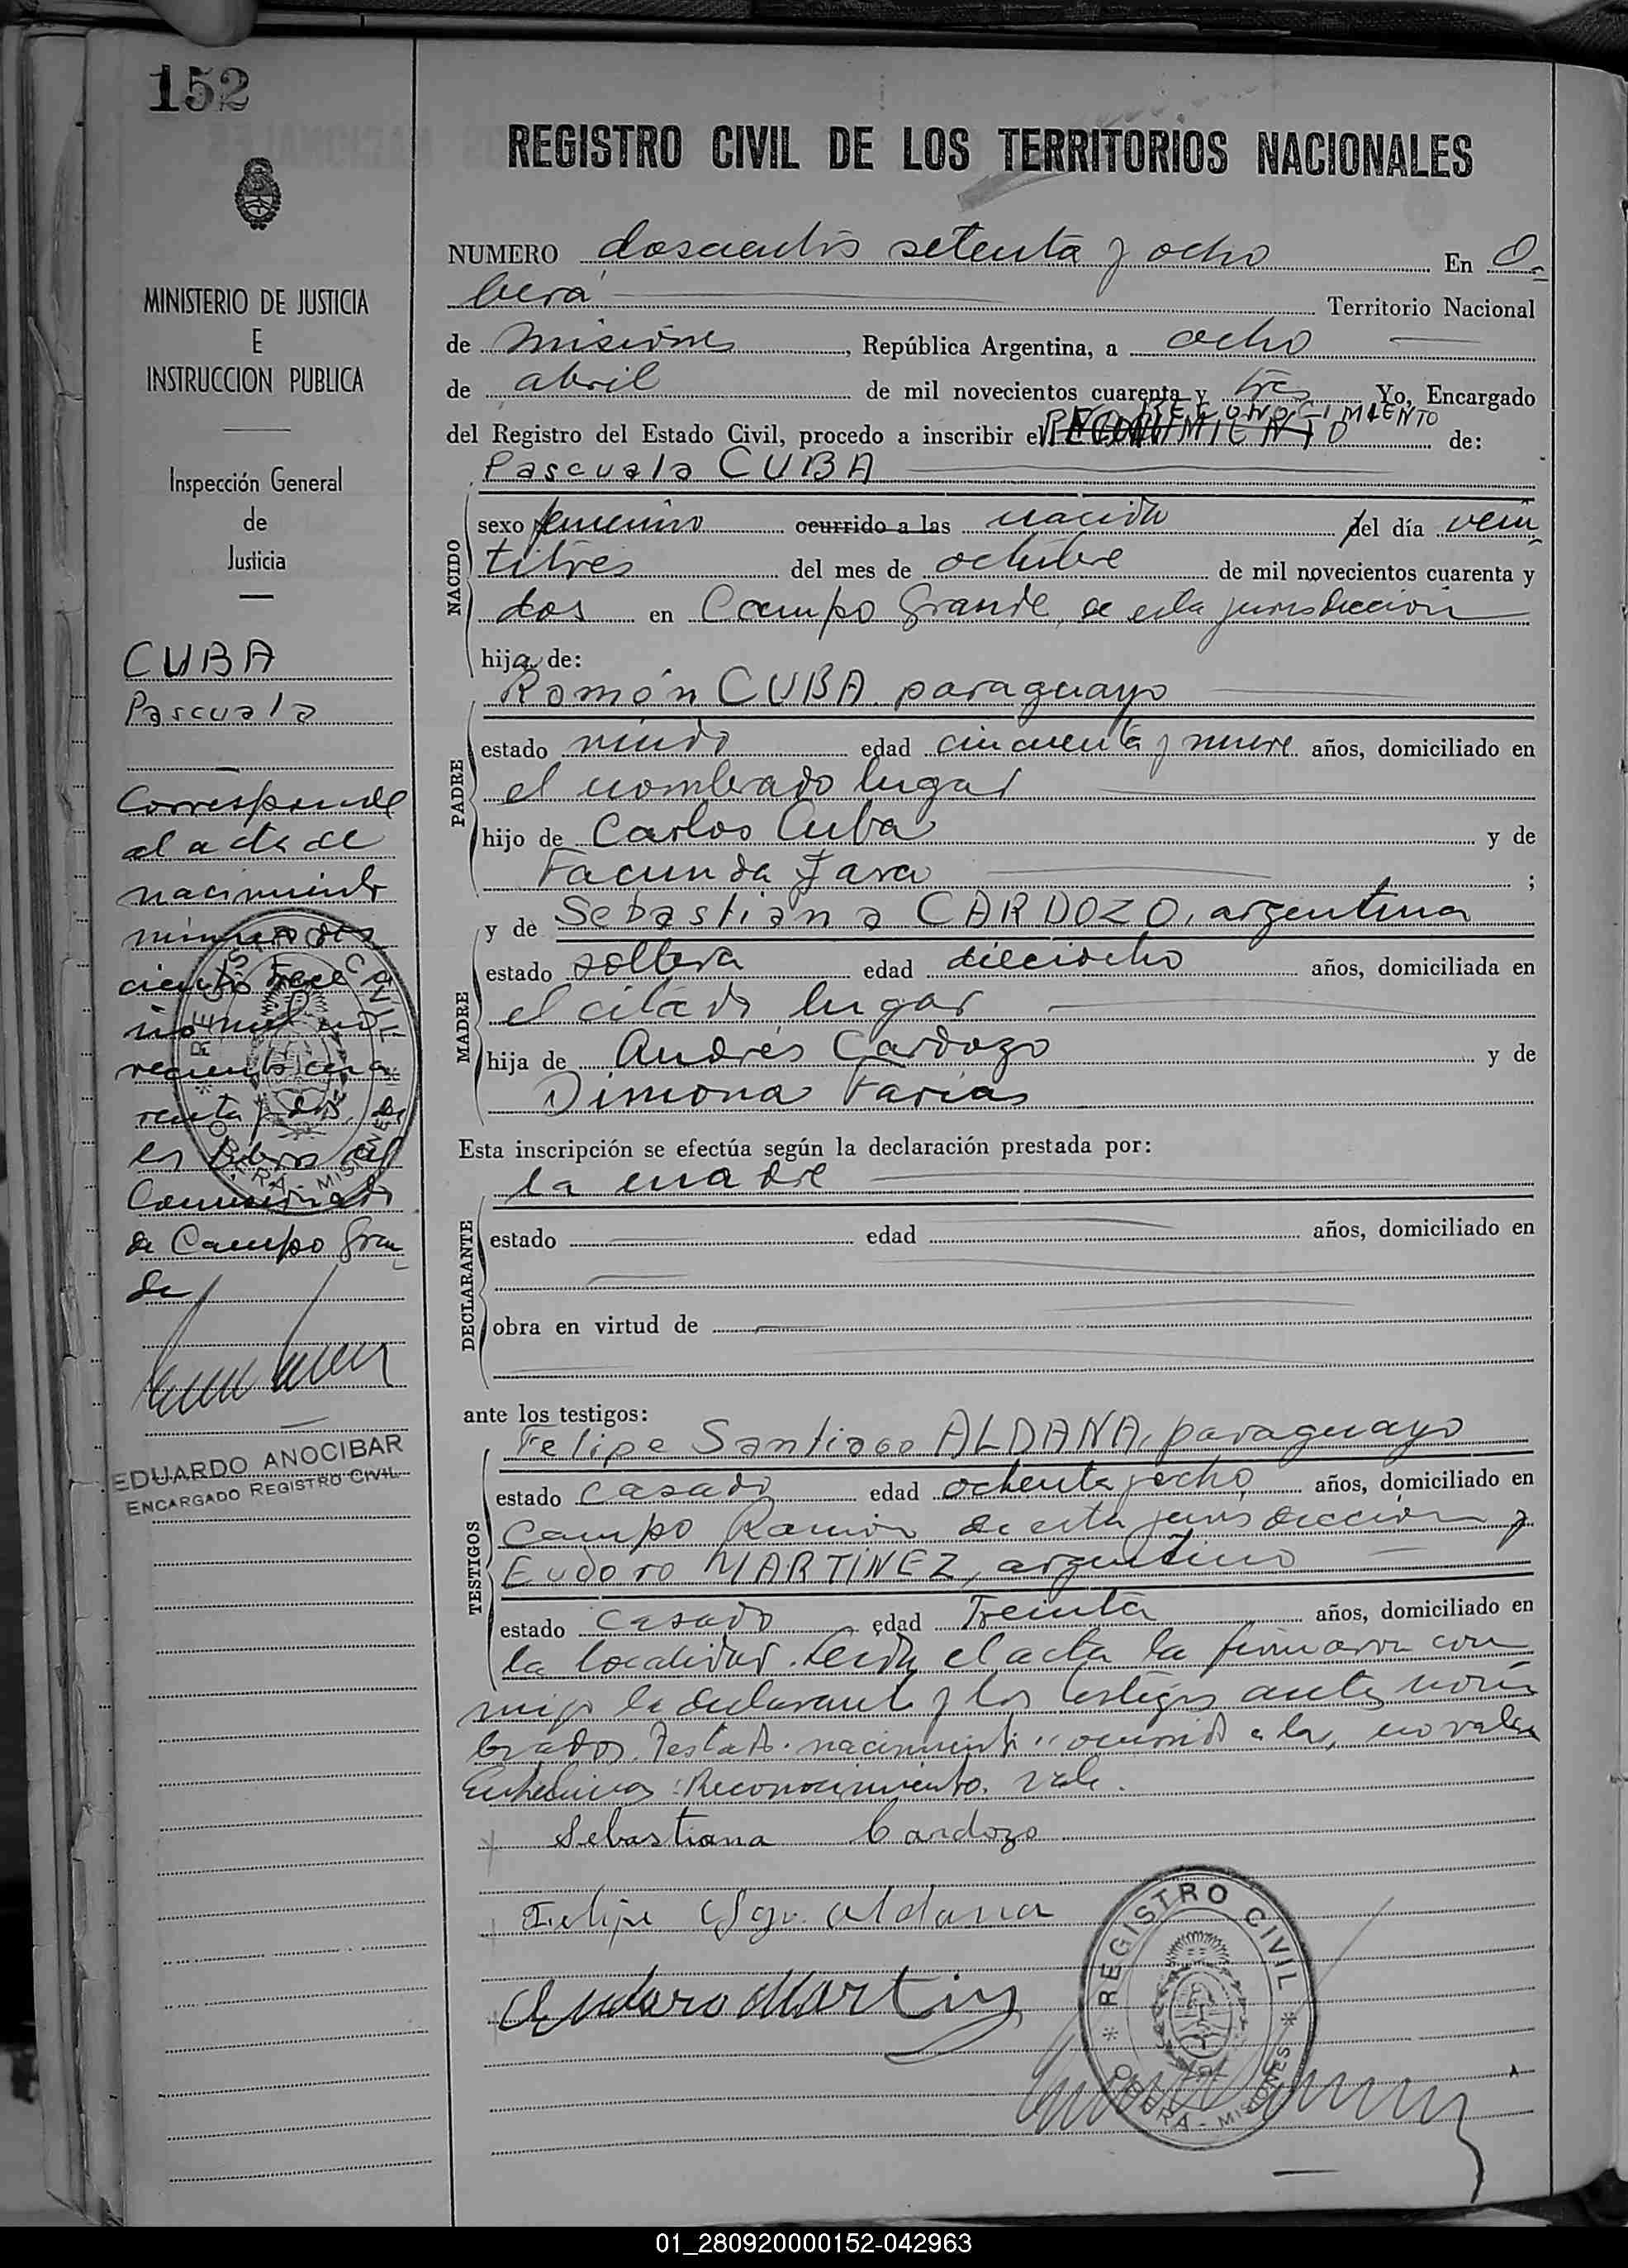 152
MINISTERIO DE JUSTICIA
E
INSTRUCCION PUBLICA
Inspección General
de
Justicia
CUBA
Pascuala
Corresponde
al acta de
nacimiento
número dos
cientos trece a
ño mil no
vecientos cua
renta y dos, de
los libros del
Comisionado
de Campo Gran
de
EDUARDO ANOCIBAR
ENCARGADO REGISTRO CIVIL
REGISTRO CIVIL
OBERA - MISIONES
REGISTRO CIVIL DE LOS TERRITORIOS NACIONALES
NUMERO doscientos setenta y ocho En O-
berá Territorio Nacional
de Misiones, República Argentina, a ocho
de abril de mil novecientos cuarenta y tres Yo, Encargado
RECONOCIMIENTO
del Registro del Estado Civil, procedo a inscribir el de:
Pascuala CUBA
NACIDO
sexo femenino ocurrido a las nacida del día vein
titres del mes de octubre de mil novecientos cuarenta y
dos en Campo Grande, de esta jurisdicción
hija de:
PADRE
Román CUBA paraguayo
estado viudo edad cincuenta y nueve años, domiciliado en
el nombrado lugar
hijo de Carlos Cuba y de
Facunda Jara ;
MADRE
y de Sebastiana CARDOZO, argentina
estado soltera edad dieciocho años, domiciliada en
el citado lugar
hija de Andrés Cardozo y de
Simona Farias
Esta inscripción se efectúa según la declaración prestada por:
DECLARANTE
la madre
estado edad años, domiciliado en
obra en virtud de
ante los testigos:
TESTIGOS
Felipe Santiago ALDANA, paraguayo
estado casado edad ochenta y ocho años, domiciliado en
Campo Ramón de esta jurisdicción y
Eudoro MARTINEZ, argentino
estado casado edad Treinta años, domiciliado en
la localidad. Leida el acta la firmaron con
migo la declarante y los testigos antes nom
brados. Testado: nacimiento "ocurrido a las, no valen
Entrelineas: Reconocimiento. vale.
Sebastiana Cardozo
Felipe Sgo. Aldana
Eudoro Martinez
REGISTRO CIVIL
OBERA - MISIONES
01_280920000152-042963